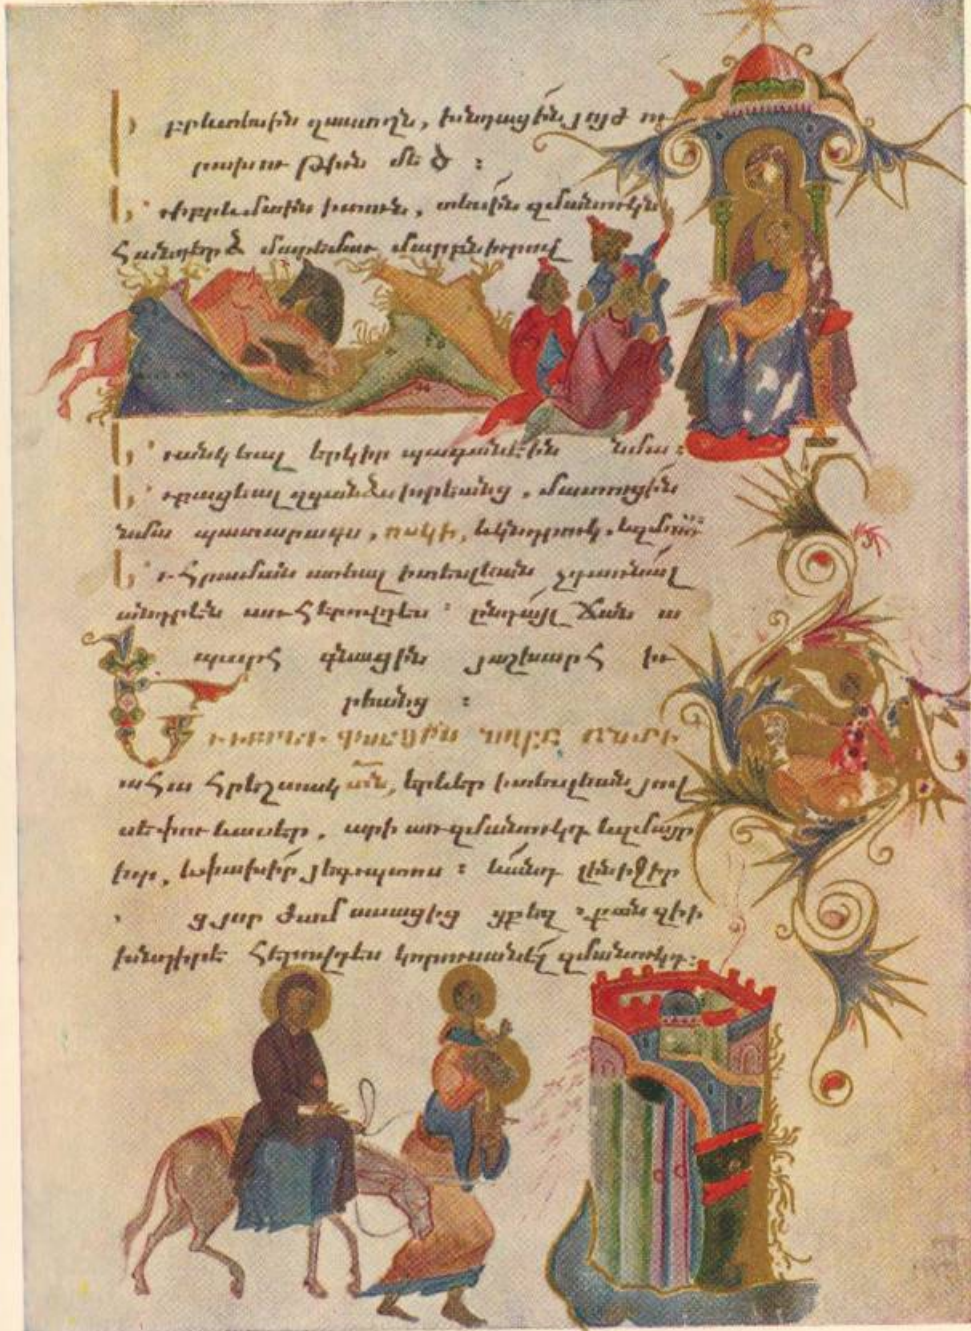 իբրև տեսին զաստղն, խնդացին յոյժ ու
րախութիւն մեծ :
Եւ իբրև մտին ի տունն, տեսին զմանուկն
հանդերձ մարեմաւ մարբն իւրով
և անկեալ երկիր պագանէին նմա :
և բացեալ զգանձս իւրեանց, մատուցին
նմա պատարագս, ոսկի, և կնդրուկ, և զմուռս
և հրաման առեալ ի տեսլեան չդառնալ
անդրէն առ հերովդէս : ընդ այլ ճանա
պարհ գնացին յաշխարհ իւ
րեանց :
Եւ իբրև գնացին նոքա անտի
ահա հրեշտակ տն, երևեր ի տեսլեան յով
սէփու և ասեր, արի առ զմանուկդ և զմայր
իւր, և փախիր յեգիպտոս : և անդ լինիջիր
ցյոր ժամ ասացից ցքեզ : քանզի ի
խնդիր է հերովդէս կորուսանել զմանուկդ :